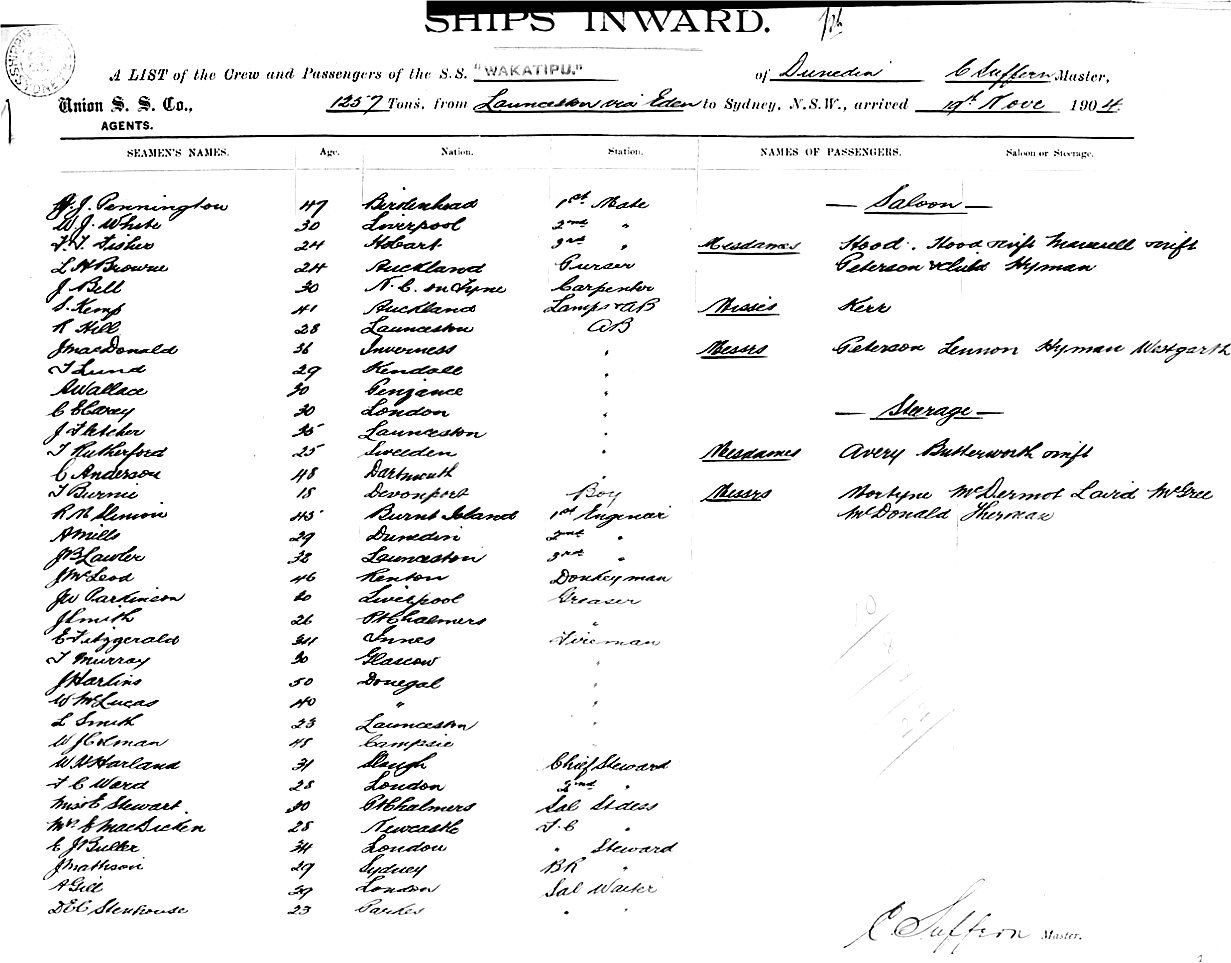 SHIPS INWARD.
A LIST of the Crew and Passengers of the S.S. "WAKATIPU." of Dunedin C Suffern Master,
Union S. S. Co., 1257 Tons, from Launceston via Eden to Sydney, N.S.W., arrived 19th Nove 1904.
AGENTS.
SEAMEN'S NAMES. Age. Nation. Station. NAMES OF PASSENGERS. Saloon or Steerage.
J. Pennington 47 Birkenhead 1st Mate — Saloon —
W J. White 30 Liverpool 2nd "
Fisher 24 Hobart 3rd " Mesdames Hood. Hood
L H Browne 24 Auckland Purser Peterson & child Hyman
J Bell 30 N. C. on Tyne Carpenter
S. Kemp 41 Auckland Lamps & AB Misses Kerr
R Hill 28 Launceston AB
J MacDonald 36 Inverness " Messrs Peterson Lennon Hyman Westgarth
T Lund 29 Kendall "
A Wallace 30 Penzance "
C E Carey 30 London " — Steerage —
J Fletcher 35 Launceston "
T Rutherford 25 Sweeden " Mesdames Avery Butterworth
C Anderson 48 Dartmouth
T Burnie 18 Devonport Boy Messrs McDermot Laird McGree
45 Burnt Island 1st Engineer McDonald
A Mills 29 Dunedin 2nd "
J B Lawler 38 Launceston 3rd "
J McLeod 46 Renton Donkeyman
J W Parkinson 30 Liverpool Greaser
J Smith 26 Pt Chalmers "
E Fitzgerald 34 Innes Fireman
T Murray 30 Glascow "
J Harlins 50 Donegal "
W McLucas 40 " "
L Smith 23 Launceston "
W J Colman 48 Campsie
W H Harland 31 Slough Chief Steward
F C Ward 28 London 2nd "
Miss E Stewart 30 Pt Chalmers Sal Stdess
Mrs E MacDicken 28 Newcastle F. C "
E J Buller 34 London " Steward
J Mathison 29 Sydney BR "
A Gill 39 London Sal Waiter
D E C Stenhouse 23 Parkes " "
C Suffern Master.